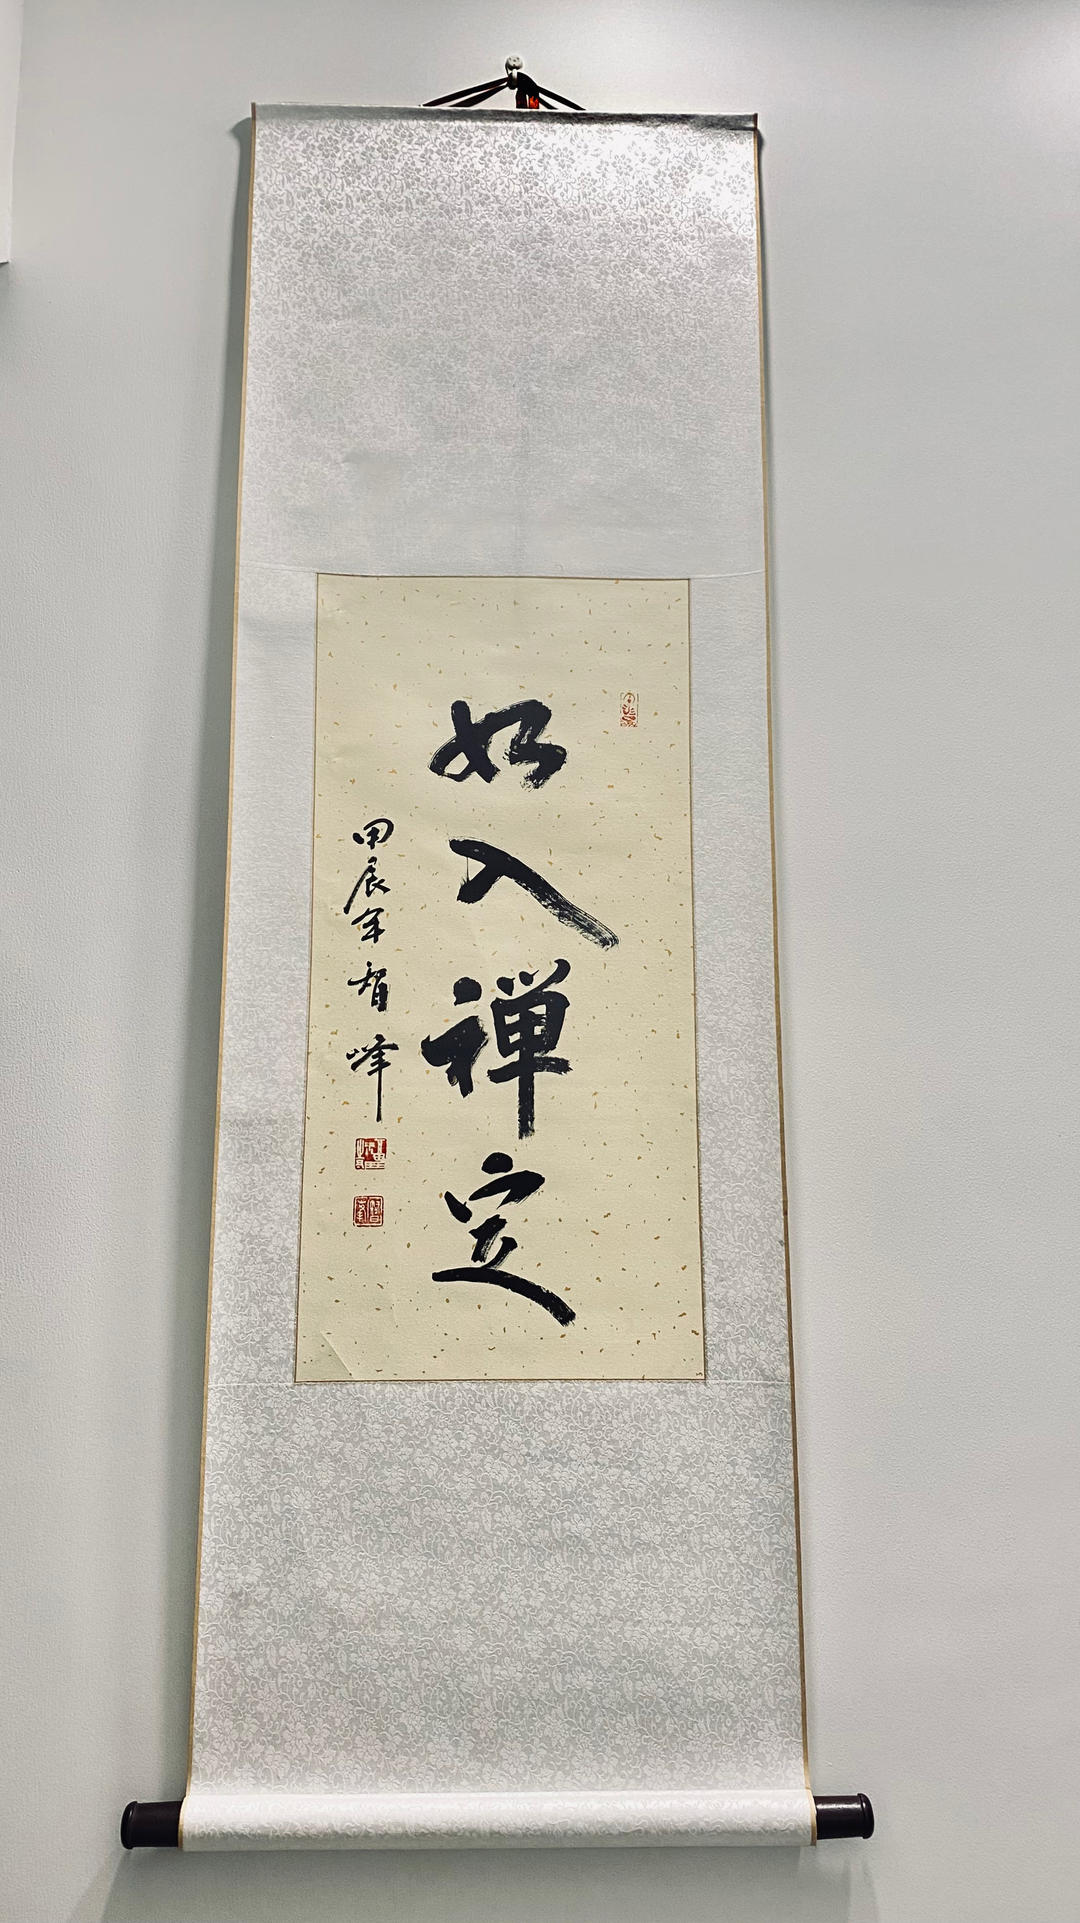 如入禅定
甲辰年智峰